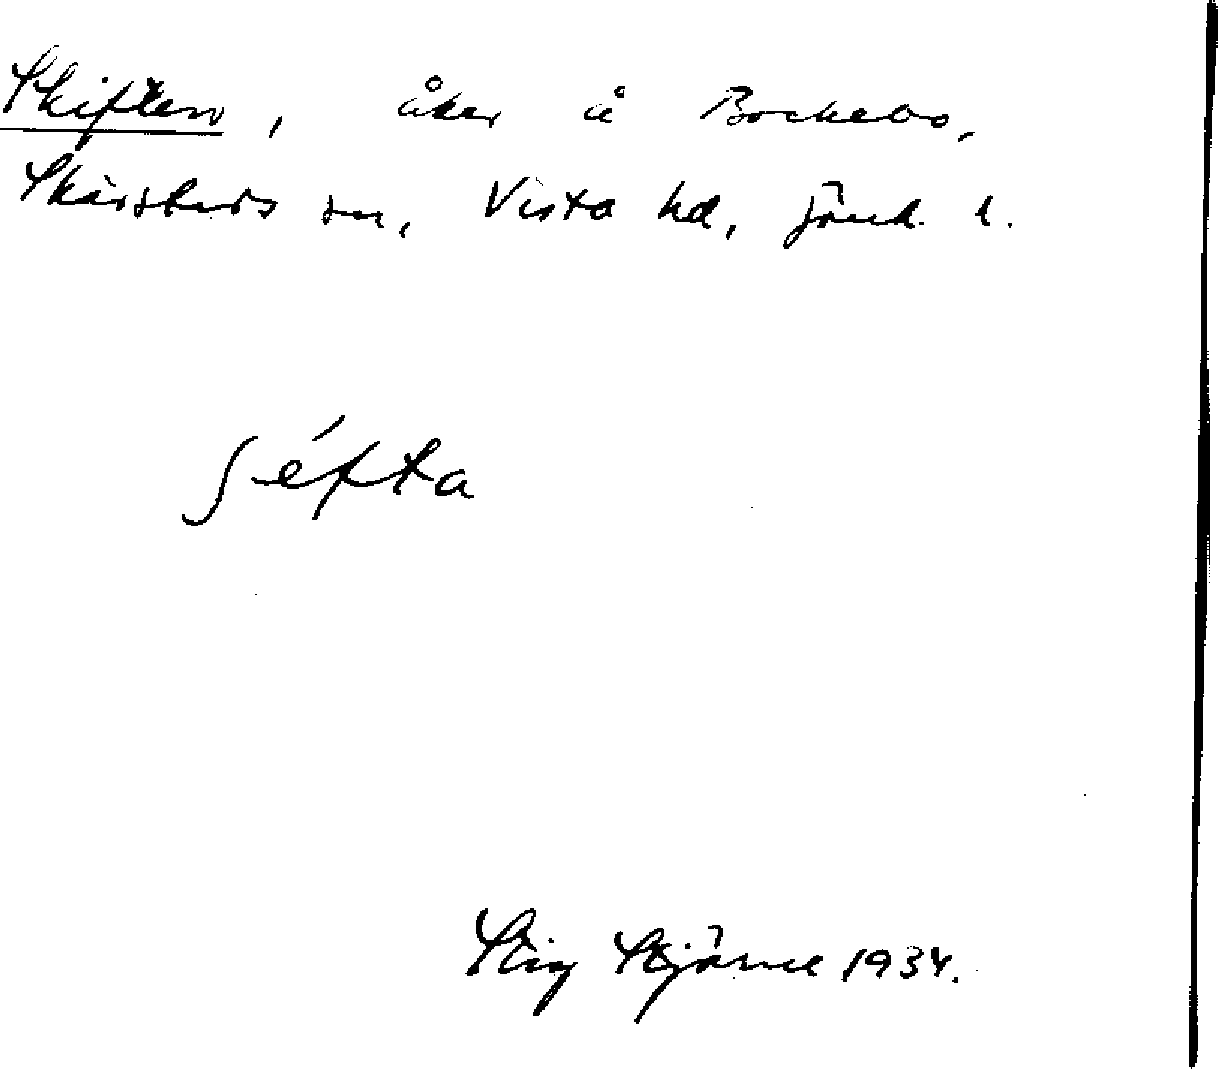 Skiften, åker å Bockebo,
Skärstads sn, Vista hd, Jönk. l.
ʃéfta
Stig Stjärne 1934.